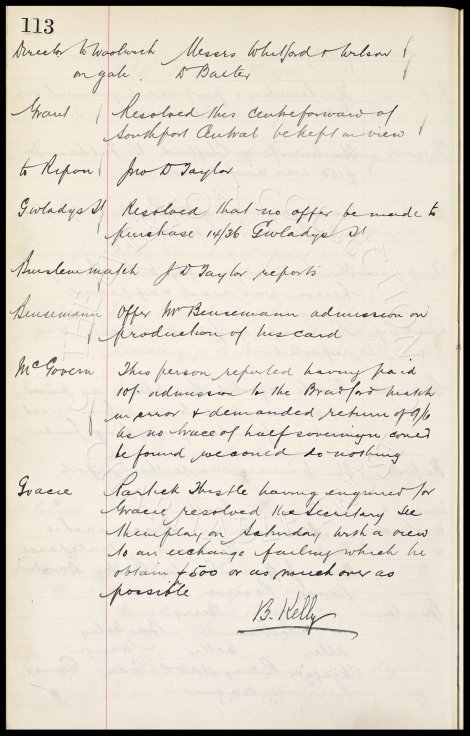 113
Director to Woolwich Messrs Whitford & Wilson
on gate. D Baxter
Grant Resolved this centreforward of
Southport Central be kept in view
to Ripon Jno D Taylor
Gwladys St Resolved that no offer be made to
purchase 14/36 Gwladys St
Burslem match J D Taylor reports
Bensemann Offer Mr Bensemann admission on
production of his card
McGovern This person reported having paid
10/- admission to the Bradford match
in error & demanded return of 9/6
as no trace of half sovereign could
be found we could do nothing
Gracie Partick Thistle having enquired for
Gracie resolved the Secretary see
them play on Saturday with a view
to an exchange failing which he
obtain £500 or as much over as
possible
B. Kelly